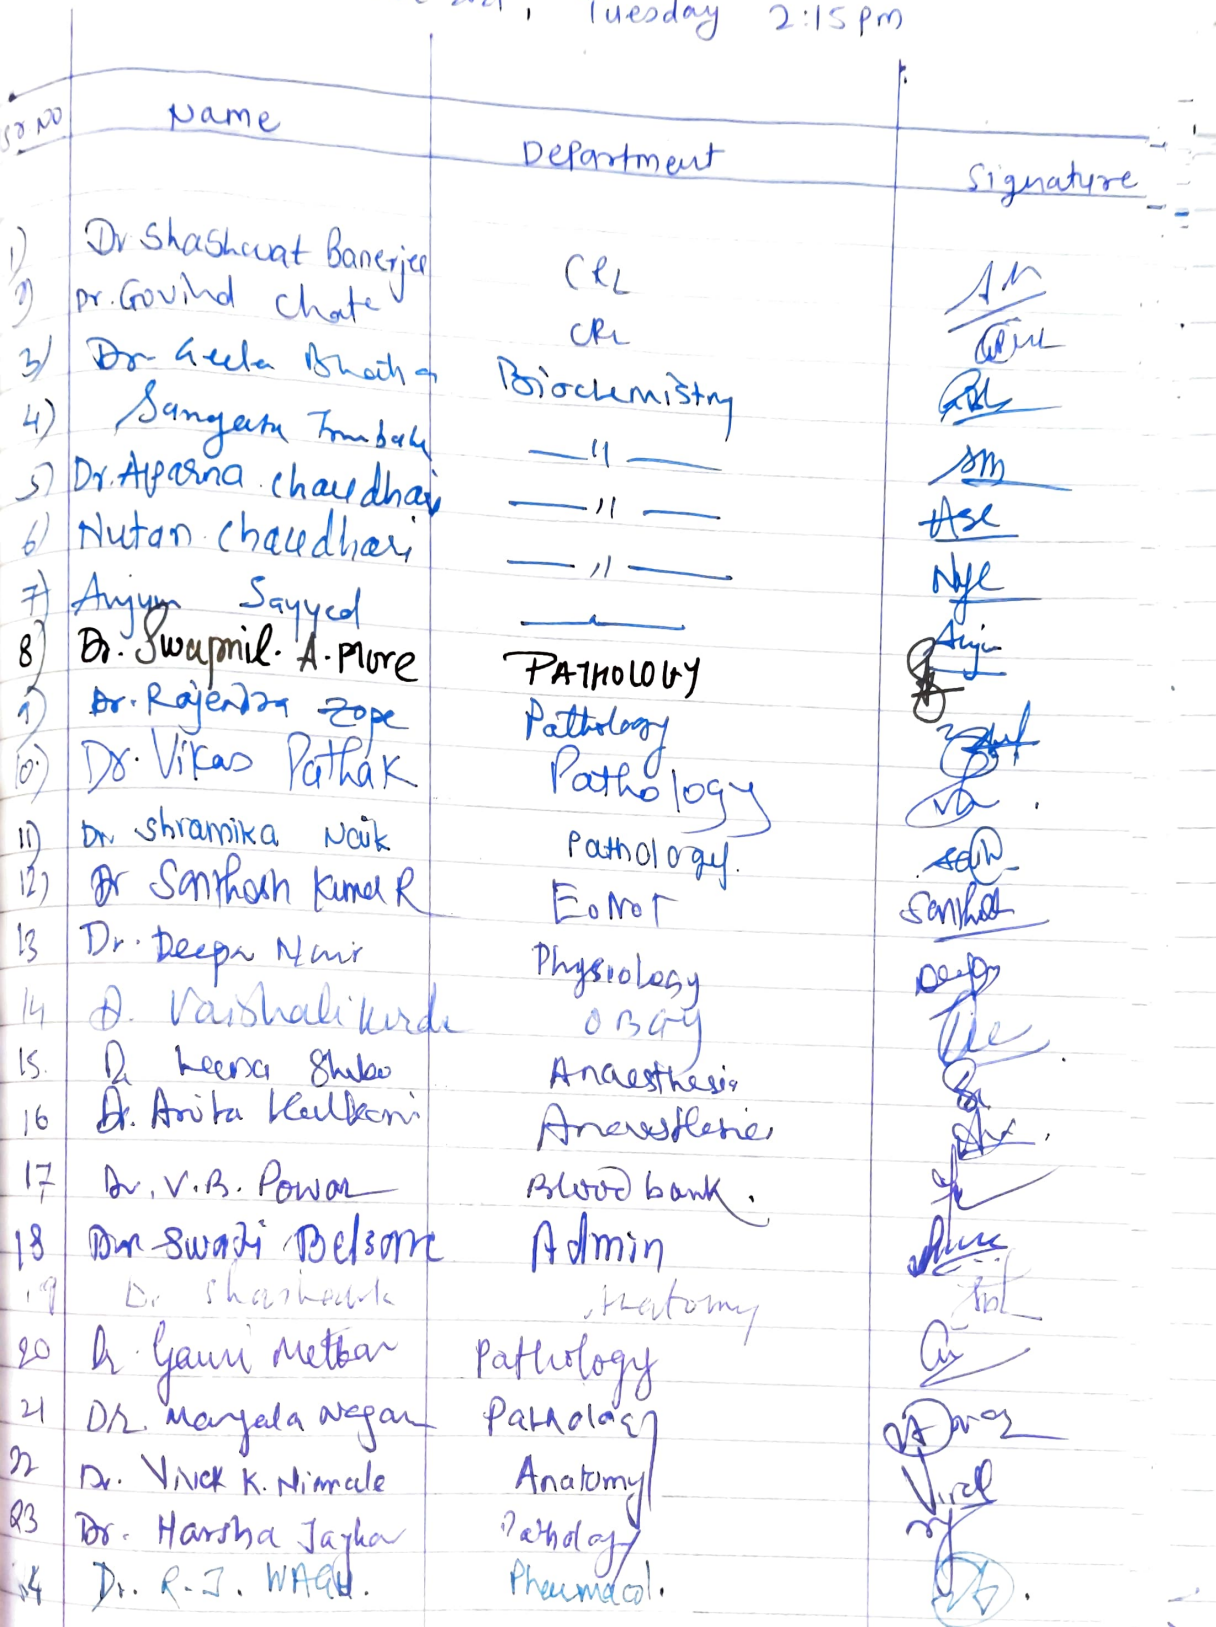 Tuesday 2:15pm
Sr No Name Department Signature
1) Dr Shashwat Banerjee CRL
2) Dr. Govind Chate CRL
3) Dr Geeta Biochemistry
4) Sangeeta —"—
5) Dr. Aparna Chaudhari —"—
6) Nutan Chaudhari —"—
7) Anjum Sayyed
8) Dr. Swapnil. A. More PATHOLOGY
9) Dr. Rajendra Zope Pathology
10) Dr. Vikas Pathak Pathology
11) Dr Shramika Naik Pathology.
12) Dr Santhosh Kumar R Santhosh
13 Dr. Deepa Nair Physiology Deepa
14 D. Vaishali Korde OBGY
15. Dr Leena Anaesthesia
16 Dr. Anita Kulkarni Anaesthesia
17 Dr. V.B. Powar Blood bank.
18 Swati Belsare Admin
19 Dr. Shashank Anatomy
20 Dr. Gauri Metkar Pathology
21 DR. Manjala Nagar Pathology
22 Dr. Vivek K. Nirmale Anatomy
23 Dr. Harsha Jaykar Pathology
24 Dr. R. J. WAGH. Pharmacol.